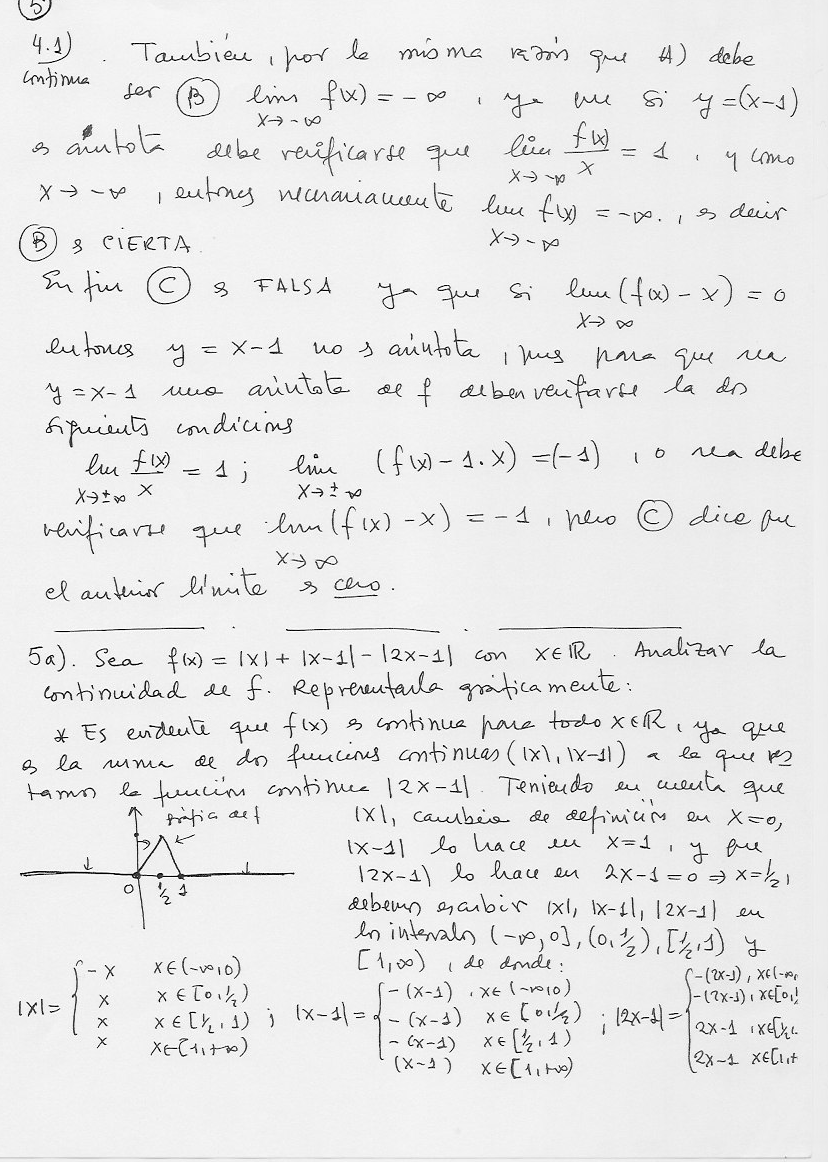 5
4.1) . También, por la misma razón que A) debe
continua
ser (B) lim f(x) = -∞ , ya que si y=(x-1)
x→-∞
es asíntota debe verificarse que lim f(x)/x = 1 , y como
x→-∞
x→-∞ , entonces necesariamente lim f(x) = -∞. , es decir
x→-∞
(B) es CIERTA.
En fin (C) es FALSA ya que si lim (f(x) - x) = 0
x→∞
entonces y = x-1 no es asíntota , pues para que sea
y = x-1 una asíntota de f deben verifarse la dos
siguients condicions
lim f(x)/x = 1 ; lim (f(x) - 1.x) = (-1) , o sea debe
x→±∞ x→±∞
verificarse que lim (f(x) - x) = -1 , pero (C) dice que
x→∞
el anterior límite es cero.
5a). Sea f(x) = |x| + |x-1| - |2x-1| con x∈ℝ . Analizar la
continuidad de f. Representarla gráficamente:
* Es evidente que f(x) es continua para todo x∈ℝ, ya que
es la suma de dos funciones continuas (|x|, |x-1|) a la que res
tamos la función continua |2x-1|. Teniendo en cuenta que
gráfica de f
|x|, cambia de definición en x=0,
|x-1| lo hace en x=1 , y que
|2x-1| lo hace en 2x-1=0 ⇒ x=½,
0 ½ 1
debemos escribir |x|, |x-1|, |2x-1| en
los intervalos (-∞,0], (0,½), [½,1) y
[1,∞) , de donde:
|x| = { -x x∈(-∞,0)
x x∈[0,½)
x x∈[½,1)
x x∈[1,+∞)
; |x-1| = { -(x-1) , x∈(-∞,0)
-(x-1) x∈[0,½)
-(x-1) x∈[½,1)
(x-1) x∈[1,+∞)
; |2x-1| = { -(2x-1), x∈(-∞,
-(2x-1), x∈[0,½
2x-1 , x∈[½,
2x-1 x∈[1,+